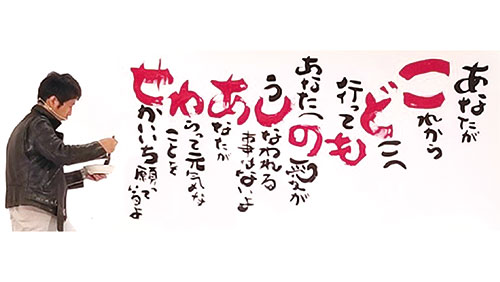 あなたが
これから
どこへ
行っても
あなたへの愛が
うしなわれる
事はないよ
あなたが
わらって元気な
ことを
せかいいち願って
いるよ